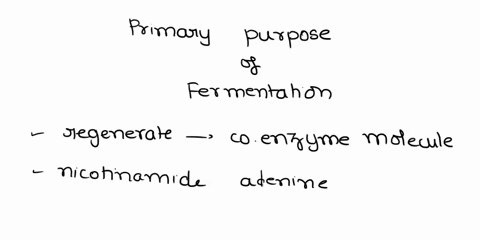 Primary purpose
of
Fermentation
- regenerate → co.enzyme molecule
- nicotinamide adenine